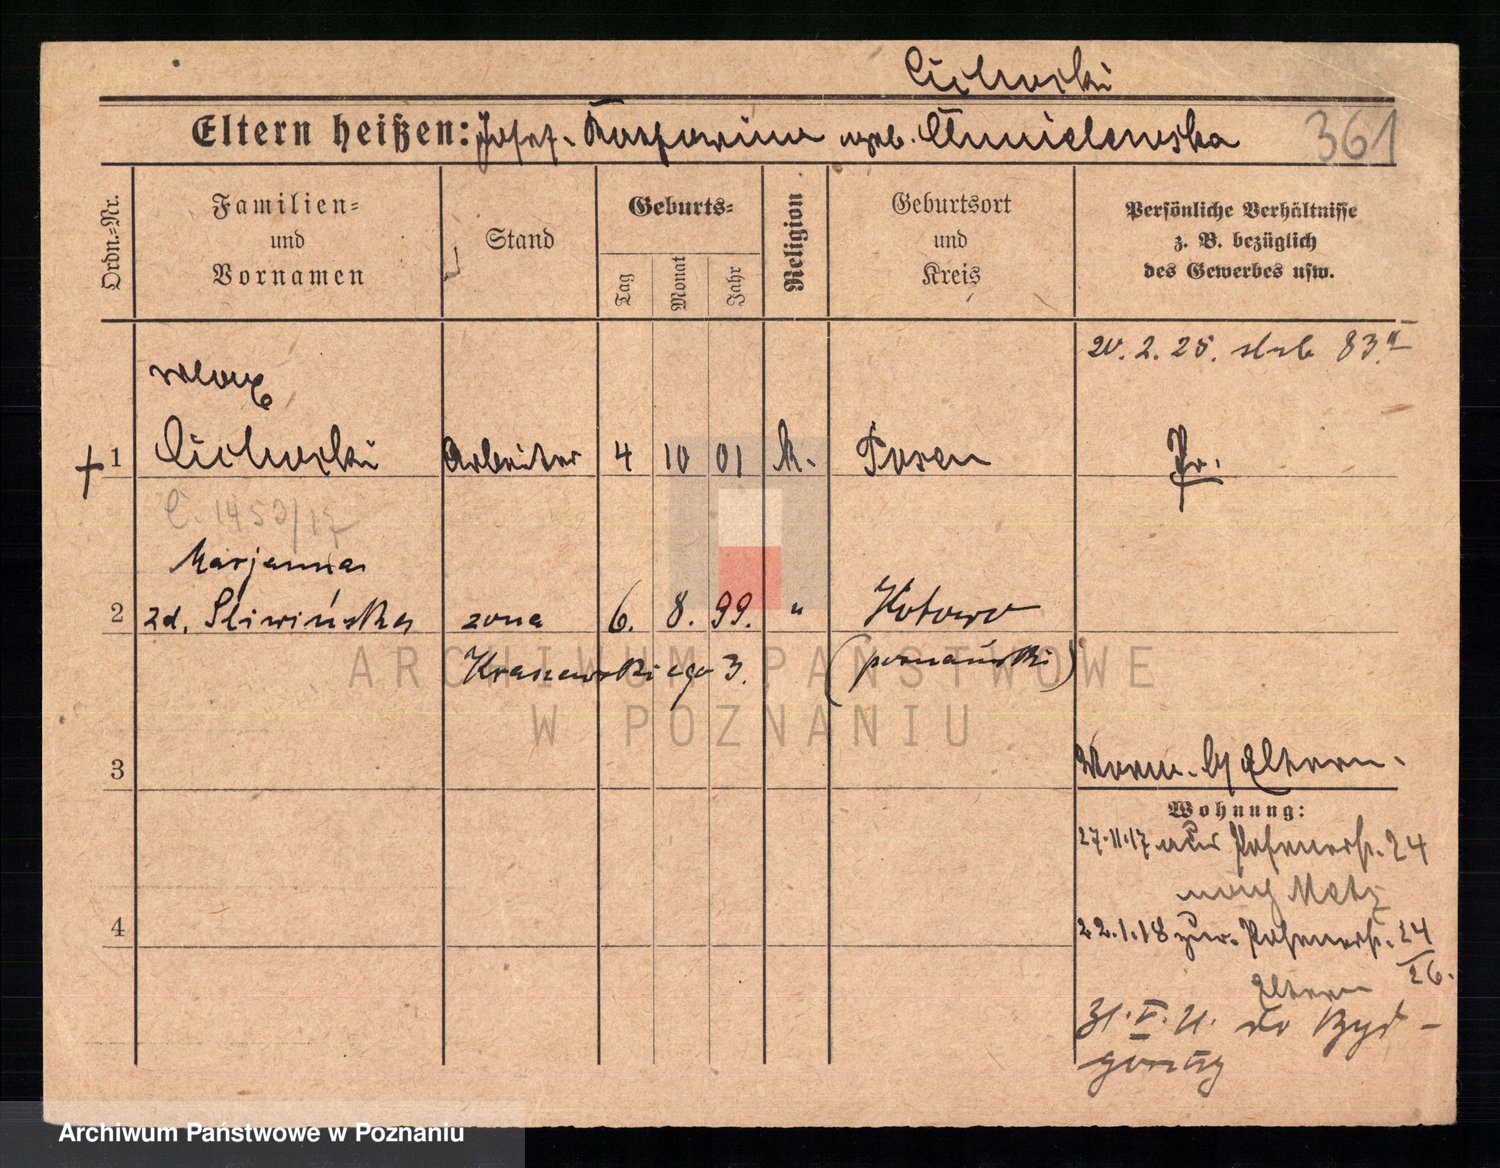 Cichowski
Eltern heißen: Josef - Katharina geb. Chmielewska 361
Ordn.-Nr.
Familien- und Vornamen
Stand
Geburts-
Tag
Monat
Jahr
Religion
Geburtsort und Kreis
Persönliche Verhältnisse z. B. bezüglich des Gewerbes usw.
20. 2. 25. 83
1 Cichowski Arbeiter 4 10 01 k. Posen Pr.
C. 1453/17
Marjanna
2 zd. Śliwińska zona 6. 8. 99. " Kotowo
Kraszewskiego 3. (poznański)
3
Eltern.
Wohnung:
27.11.17 aus 24
nach Metz
4
22.1.18 zur. 24/26.
Eltern
31.V.21. do Byd-
goszczy
ARCHIWUM PAŃSTWOWE
W POZNANIU
Archiwum Państwowe w Poznaniu